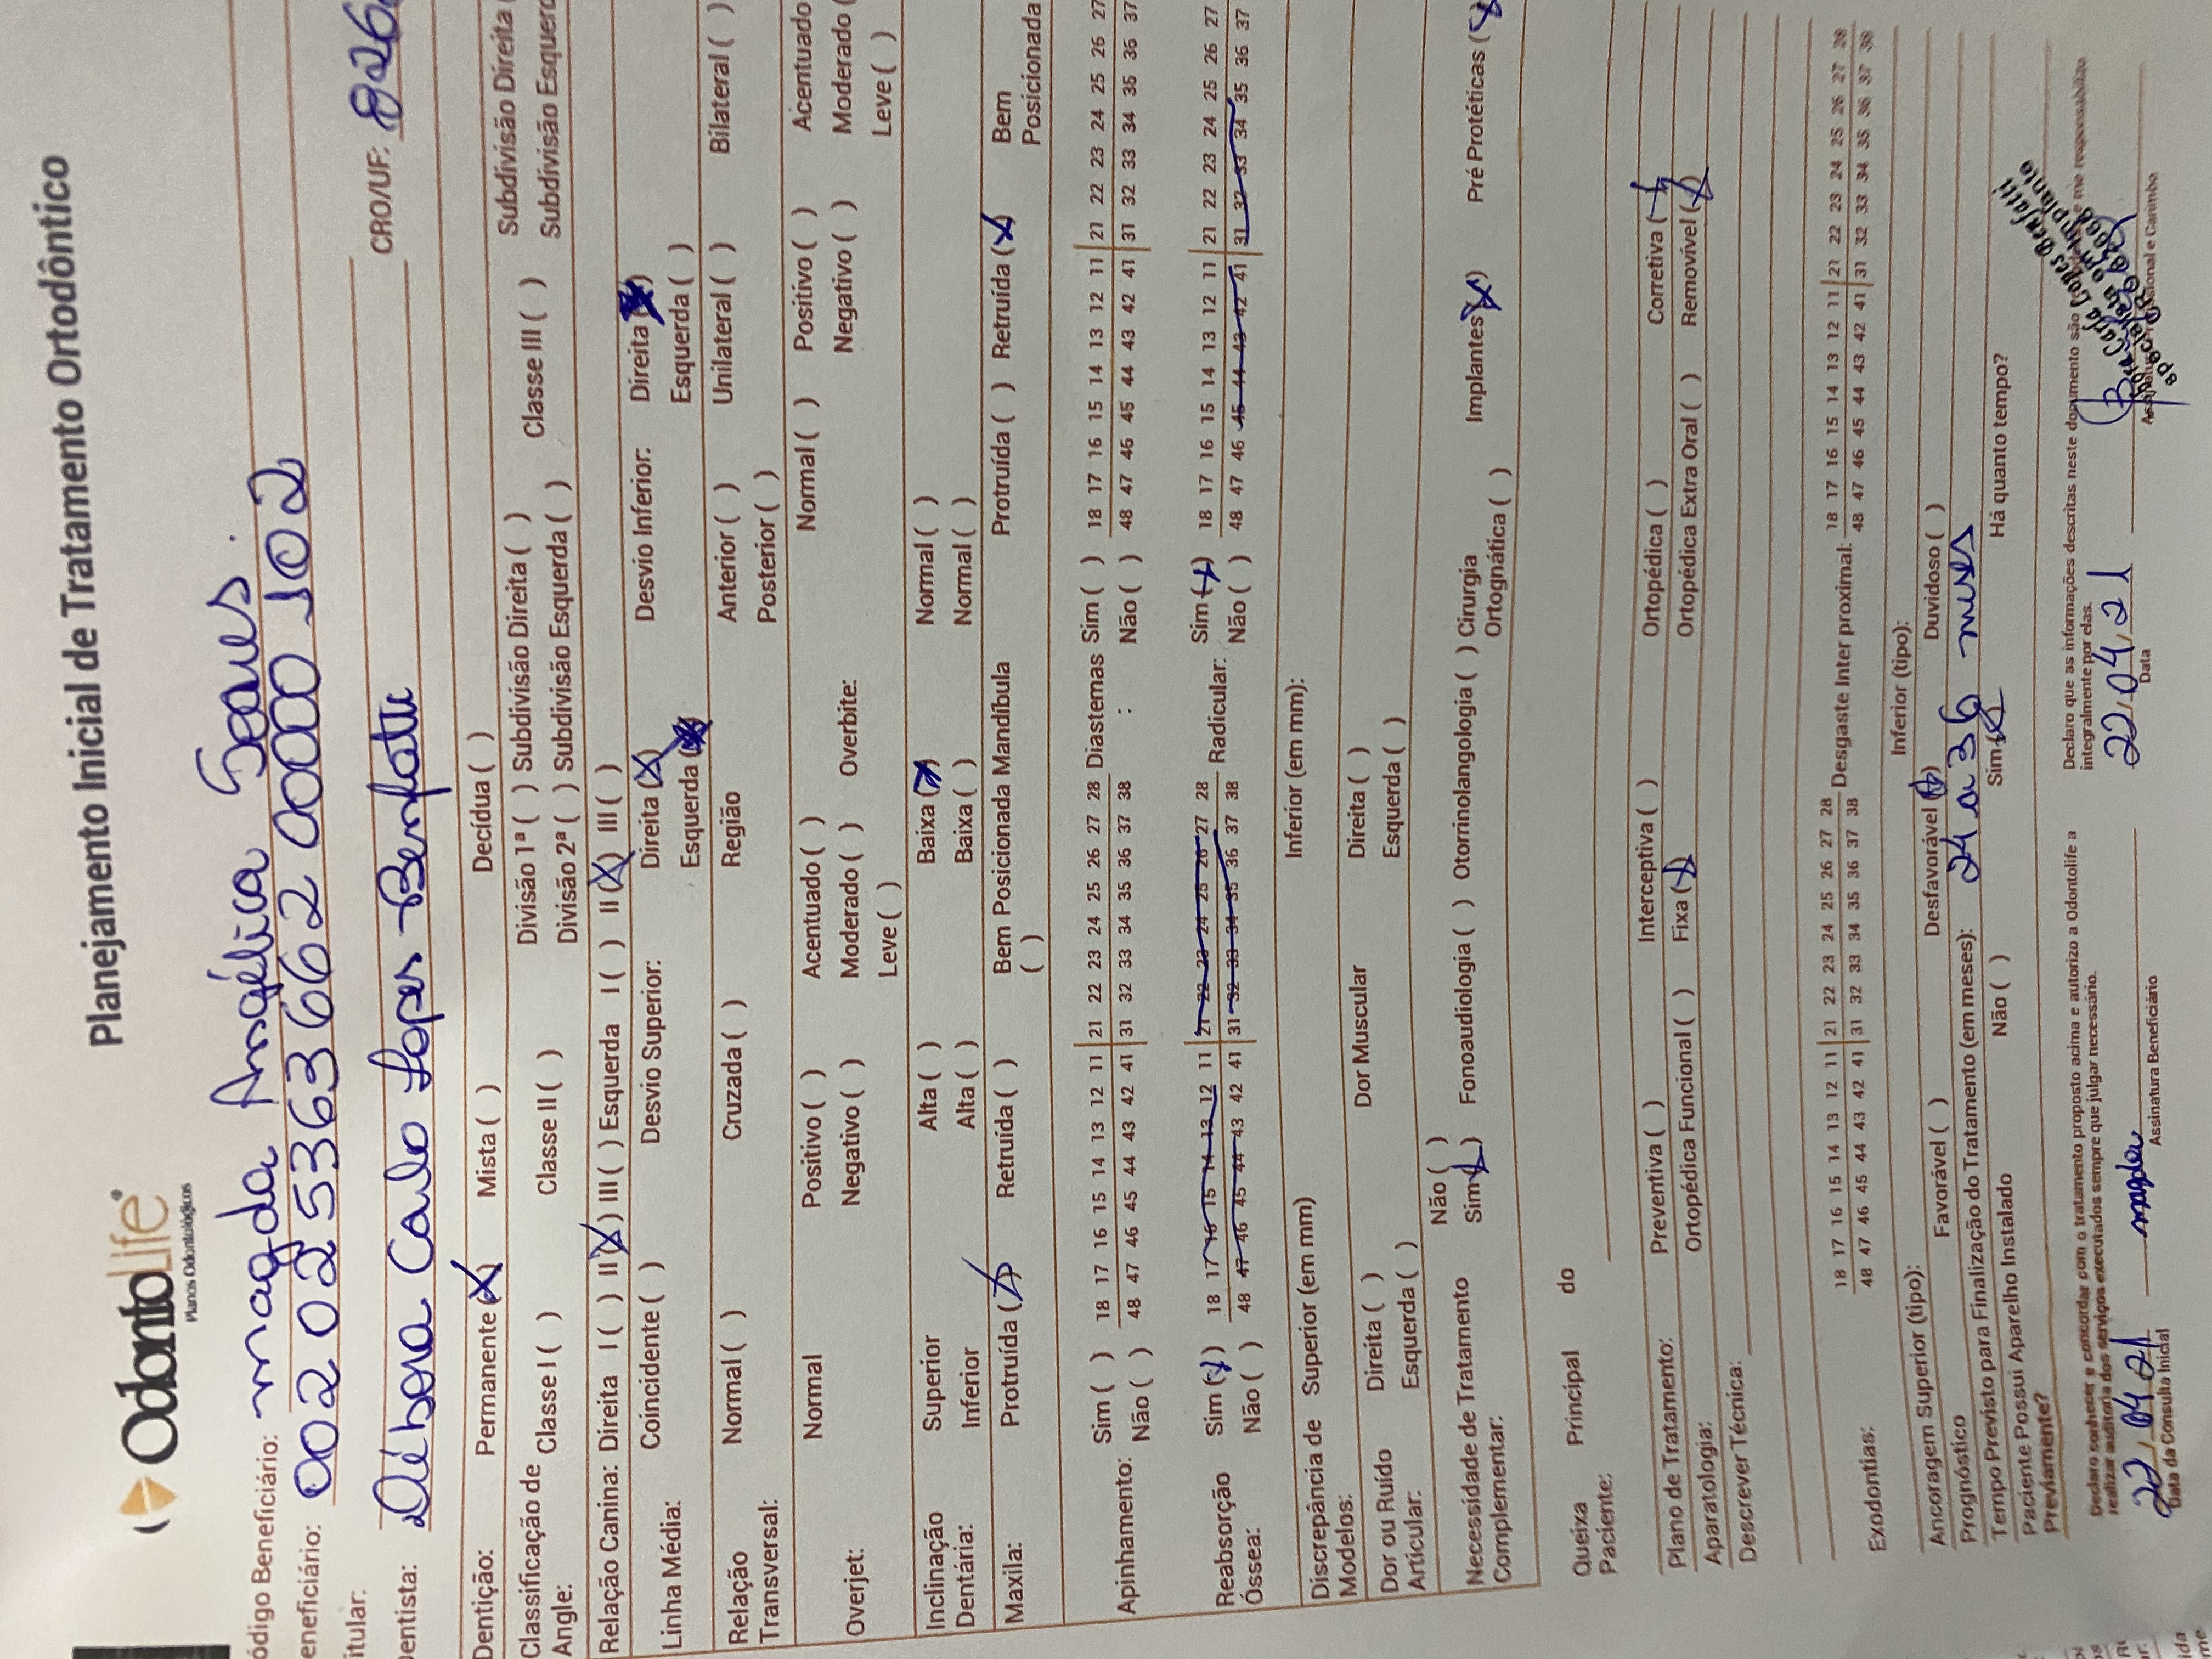 OdontoLife
Planos Odontológicos
Planejamento Inicial de Tratamento Ortodôntico
ódigo Beneficiário: magda Angélica Soares.
eneficiário: 00202536366200000102
itular:
entista: Débora Carla Lopes Benfatti CRO/UF: 826
Dentição: Permanente (X) Mista ( ) Decídua ( )
Classificação de Angle: Classe I ( ) Classe II ( ) Divisão 1ª ( ) Subdivisão Direita ( ) Classe III ( ) Subdivisão Direita (
Divisão 2ª ( ) Subdivisão Esquerda ( ) Subdivisão Esquerd
Relação Canina: Direita I ( ) II (X) III ( ) Esquerda I ( ) II (X) III ( )
Linha Média: Coincidente ( ) Desvio Superior: Direita (X) Desvio Inferior: Direita (X)
Esquerda (X) Esquerda ( )
Relação Transversal: Normal ( ) Cruzada ( ) Região Anterior ( ) Unilateral ( ) Bilateral ( )
Posterior ( )
Overjet: Normal Positivo ( ) Acentuado ( ) Overbite: Normal ( ) Positivo ( ) Acentuado
Negativo ( ) Moderado ( ) Negativo ( ) Moderado (
Leve ( ) Leve ( )
Inclinação Dentária: Superior Alta ( ) Baixa (X) Normal ( )
Inferior Alta ( ) Baixa ( ) Normal ( )
Maxila: Protruída (X) Retruída ( ) Bem Posicionada ( ) Mandíbula Protruída ( ) Retruída (X) Bem Posicionada
Apinhamento: Sim ( ) 18 17 16 15 14 13 12 11 21 22 23 24 25 26 27 28 Diastemas : Sim ( ) 18 17 16 15 14 13 12 11 21 22 23 24 25 26 27
Não ( ) 48 47 46 45 44 43 42 41 31 32 33 34 35 36 37 38 Não ( ) 48 47 46 45 44 43 42 41 31 32 33 34 35 36 37
Reabsorção Óssea: Sim (X) 18 17 16 15 14 13 12 11 21 22 23 24 25 26 27 28 Radicular: Sim (X) 18 17 16 15 14 13 12 11 21 22 23 24 25 26 27
Não ( ) 48 47 46 45 44 43 42 41 31 32 33 34 35 36 37 38 Não ( ) 48 47 46 45 44 43 42 41 31 32 33 34 35 36 37
Discrepância de Modelos: Superior (em mm) Inferior (em mm):
Dor ou Ruído Articular: Direita ( ) Dor Muscular Direita ( )
Esquerda ( ) Esquerda ( )
Necessidade de Tratamento Complementar: Não ( )
Sim (X) Fonoaudiologia ( ) Otorrinolangologia ( ) Cirurgia Ortognática ( ) Implantes (X) Pré Protéticas (X
Queixa Principal do Paciente:
Plano de Tratamento: Preventiva ( ) Interceptiva ( ) Ortopédica ( ) Corretiva (X)
Aparatologia: Ortopédica Funcional ( ) Fixa (X) Ortopédica Extra Oral ( ) Removível (X)
Descrever Técnica:
Exodontias: 18 17 16 15 14 13 12 11 21 22 23 24 25 26 27 28 Desgaste Inter proximal: 18 17 16 15 14 13 12 11 21 22 23 24 25 26 27 28
48 47 46 45 44 43 42 41 31 32 33 34 35 36 37 38 48 47 46 45 44 43 42 41 31 32 33 34 35 36 37 38
Ancoragem Superior (tipo): Inferior (tipo):
Prognóstico Favorável ( ) Desfavorável (X) Duvidoso ( )
Tempo Previsto para Finalização do Tratamento (em meses): 24 a 36 meses
Paciente Possui Aparelho Instalado Previamente? Não ( ) Sim (X) Há quanto tempo?
Declaro conhecer e concordar com o tratamento proposto acima e autorizo a Odontolife a
realizar auditoria dos serviços executados sempre que julgar necessário.
Declaro que as informações descritas neste documento são e me responsabilizo
integralmente por elas.
22, 04 21 magda 22, 04, 21
Data da Consulta Inicial Assinatura Beneficiário Data Assinatura Profissional e Carimbo